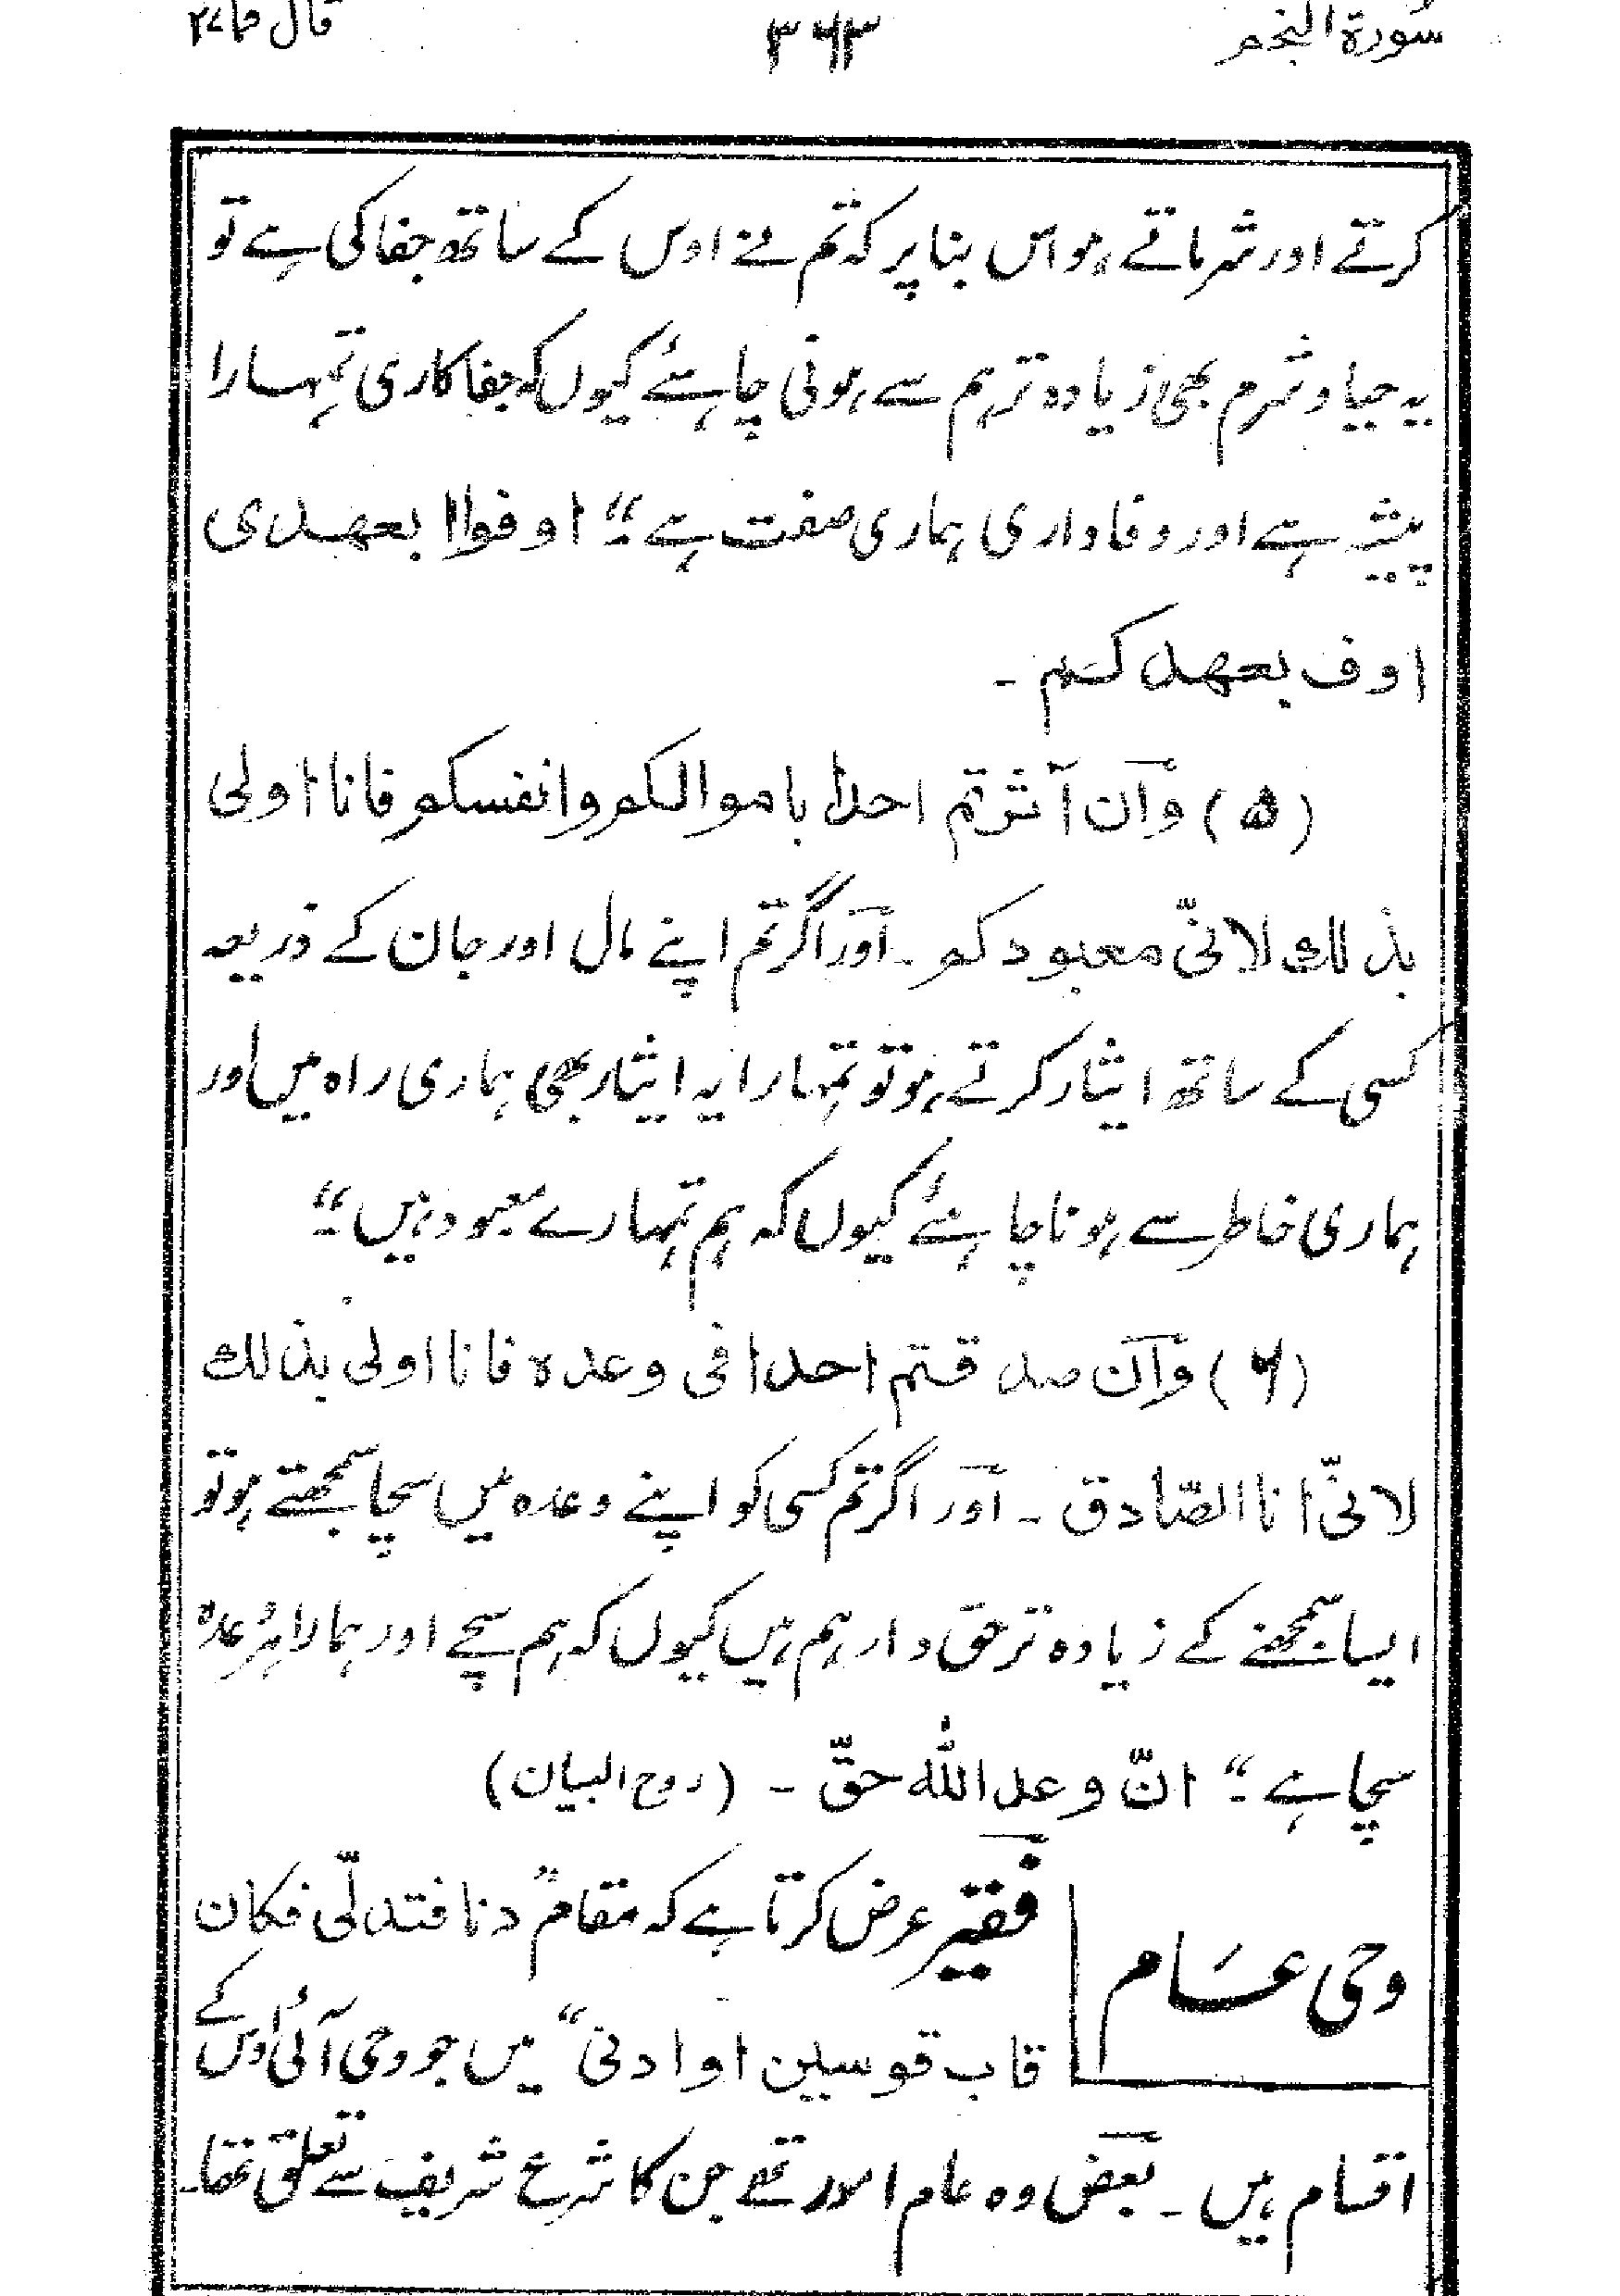 سُورة النجم ۳۶۳ قال فما ۲۷
کرتے اور شرماتے ہو اس بنا پر کہ تم نے اوس کے ساتھ جفا کی ہے تو
یہ حیا و شرم بھی زیادہ تر ہم سے ہونی چاہئے کیوں کہ جفا کاری تمہارا
پیشہ ہے اور وفاداری ہماری صفت ہے ۔“ اوفوا بعهدی
اوف بعهدکم ۔
(۵) وان آثرتم احدا باموالکم وانفسکم فانا اولی
بذلك لانّی معبودکم ۔ اور اگر تم اپنے مال اور جان کے ذریعہ
کسی کے ساتھ ایثار کرتے ہو تو تمہارا یہ ایثار بھی ہماری راہ میں اور
ہماری خاطر سے ہونا چاہئے کیوں کہ ہم تمہارے معبود ہیں ۔“
(۶) وان صدقتم احدا فی وعدہ فانا اولی بذلك
لانّی انا الصّادق ۔ اور اگر تم کسی کو اپنے وعدہ میں سچا سمجھتے ہو تو
ایسا سمجھنے کے زیادہ تر حق دار ہم ہیں کیوں کہ ہم سچے اور ہمارا ہر وعدہ
سچا ہے ۔“ انّ وعد اللّٰه حقّ ۔ (روح البیان)
وحی عَام
فقیر عرض کرتا ہے کہ مقام ”دنا فتدلّی فکان
قاب قوسین او ادنی“ میں جو وحی آئی اُوس کے
اقسام ہیں ۔ بعض وہ عام امور تھے جن کا شرع شریف سے تعلق تھا۔